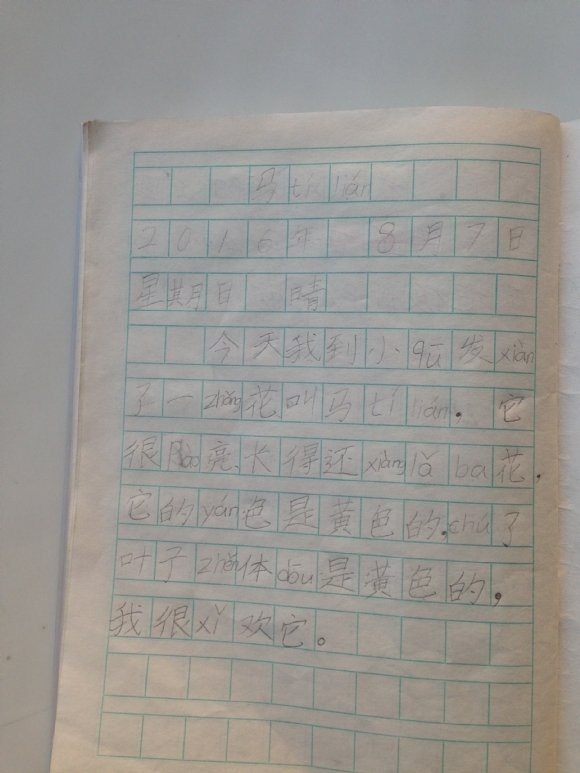 马tí lián
2016年 8月7日
星期日 晴
今天我到小qū发xiàn
了一zhǒng花叫马tí lián。它
很亮、长得还xiàng lǎ ba花,
它的yán色是黄色的.chú了
叶子zhěn体dōu是黄色的,
我很xǐ欢它。